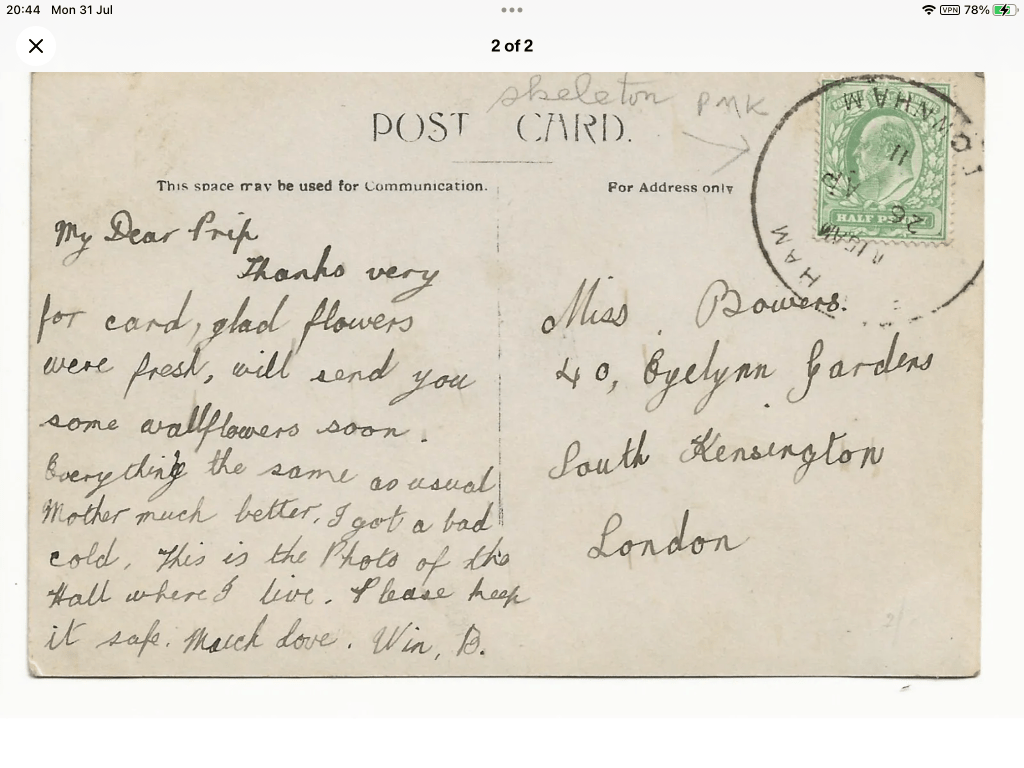 20:44 Mon 31 Jul
VPN 78%
2 of 2
skeleton PMK
POST CARD.
This space may be used for Communication.
For Address only
HALF PENNY
11
AP
26
HAM
My Dear Prip
Thanks very
for card, glad flowers
were fresh, will send you
some wallflowers soon.
Everything the same as usual
Mother much better, I got a bad
cold. This is the Photo of the
Hall where I live. Please keep
it safe. Much love. Win, B.
Miss Bowers.
40, Eyelynn Gardens
South Kensington
London